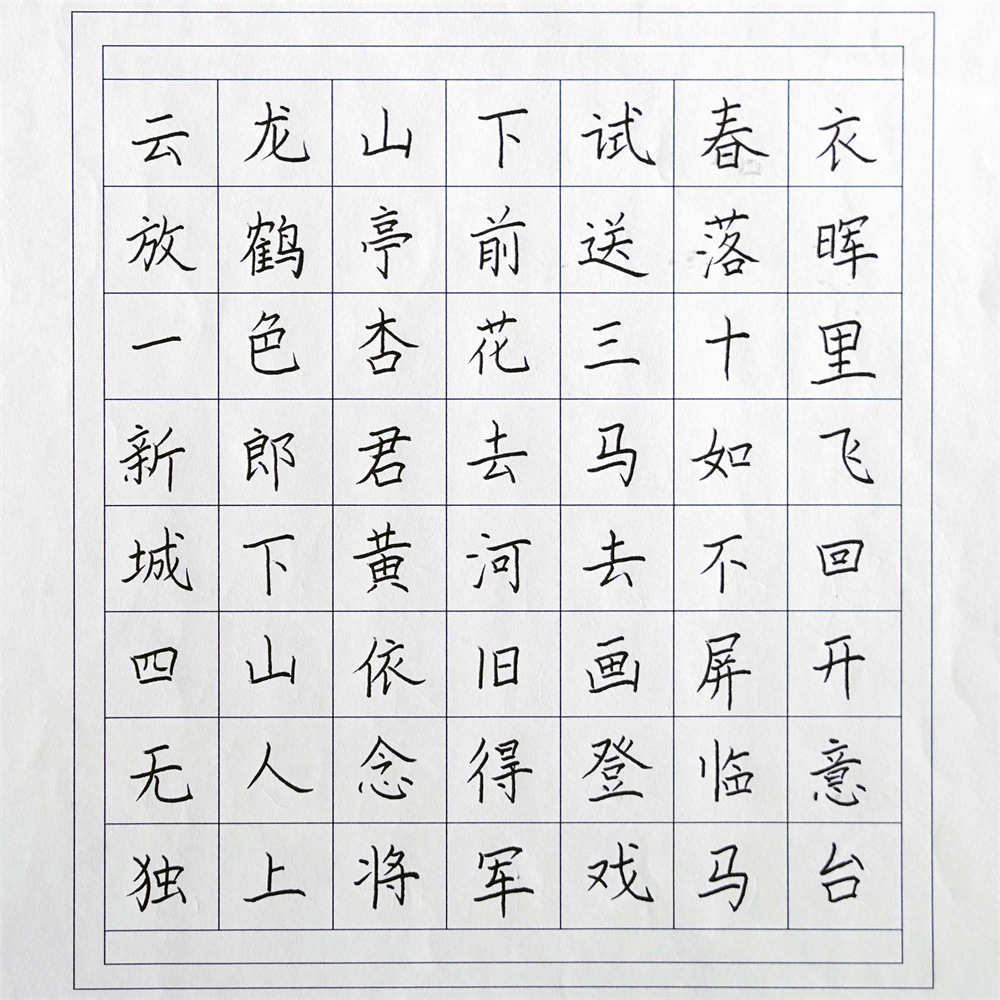 云龙山下试春衣
放鹤亭前送落晖
一色杏花三十里
新郎君去马如飞
城下黄河去不回
四山依旧画屏开
无人念得登临意
独上将军戏马台